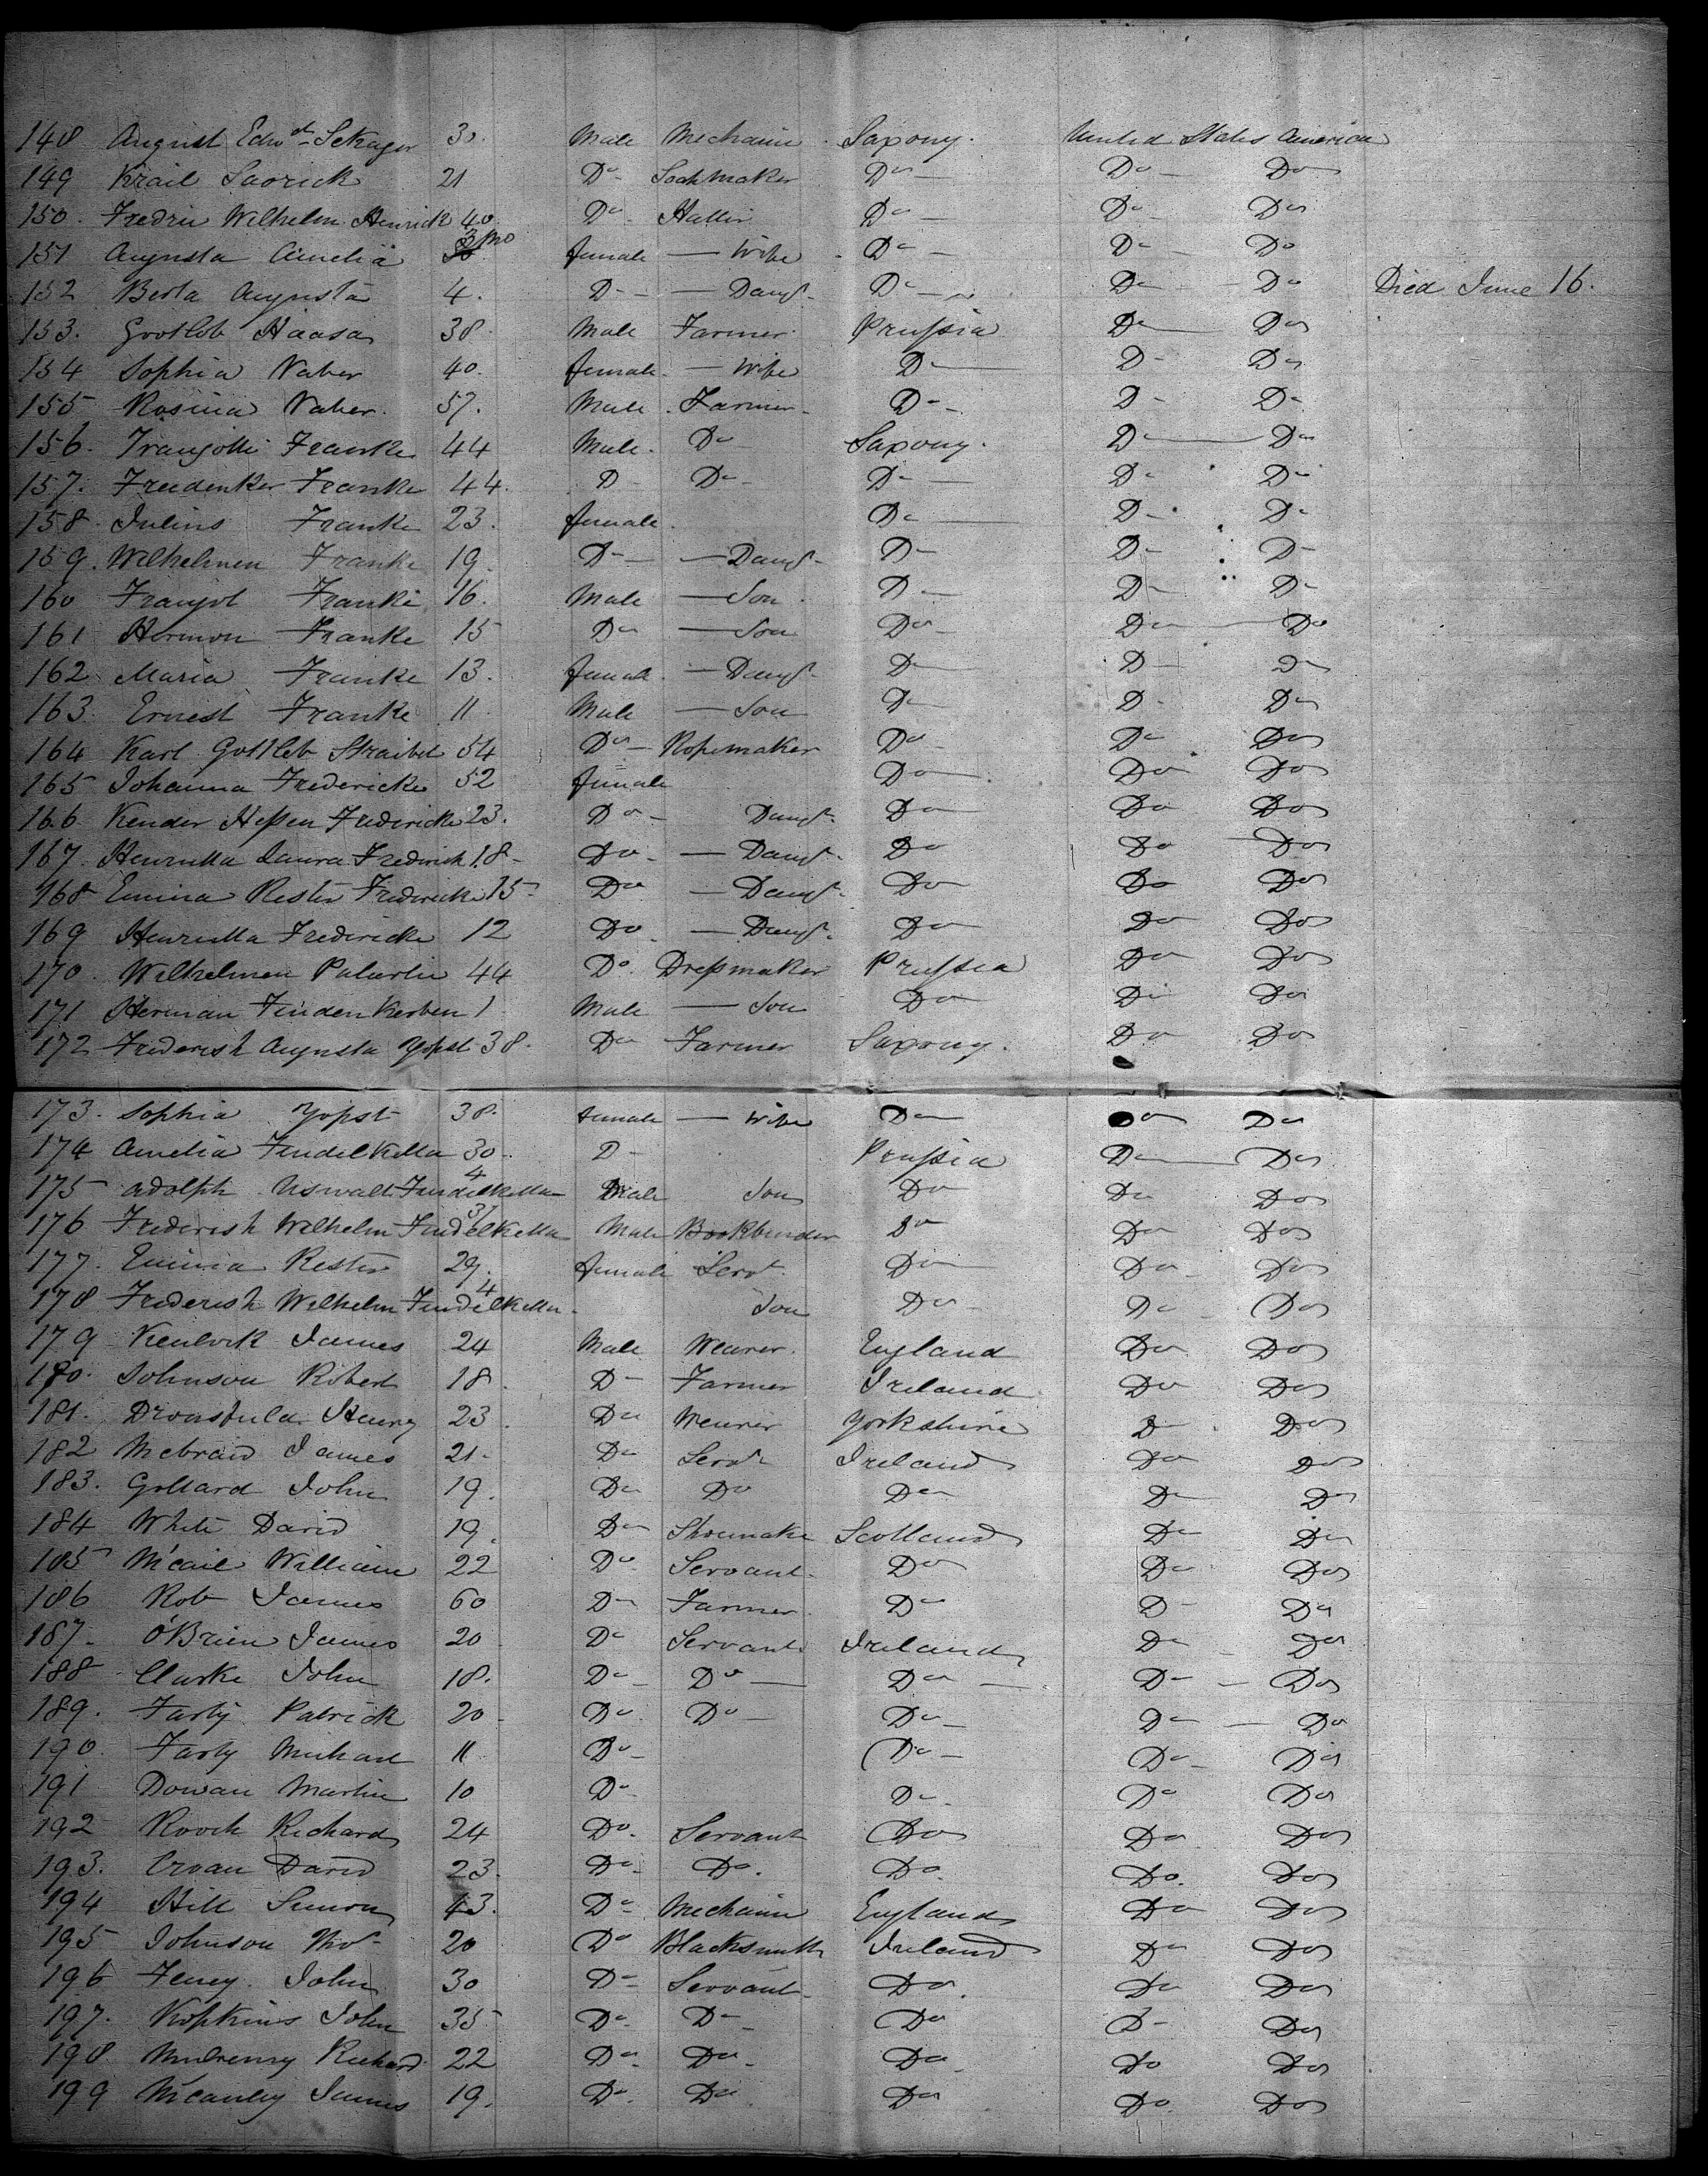 148 August Edwd Schager 30. Male Mechanic Saxony. United States America
149 Krail Saorick 21 Do Sockmaker Do Do Do
150. Fredric Wilhelm Henrick 40. Do Hatter Do Do Do
151 Augusta Amelia 3 Mo female — Wife Do Do Do
152 Berta Augusta 4. D — Daugt Do Do Do Died June 16.
153. Grotlob Haasa 38. Male Farmer Prussia Do Do
154 Sophia Naber 40. female — Wife Do Do Do
155 Rosina Naber. 57. Male Farmer Do Do Do
156. Traugotti Franke 44 Male. Do Saxony. Do Do
157. Freudenker Franke 44. D Do Do Do Do
158. Julius Franke 23. female. Do Do Do
159. Wilhelmen Franke 19. D — Daugt Do Do Do
160 Fraugot Franke 16. Male — Son Do Do Do
161 Hermon Franke 15 Do — Son Do Do Do
162 Maria Franke 13. female. — Daugt Do Do Do
163. Ernest Franke 11 Male — Son Do Do Do
164 Karl Gottleb Straibel 54 Do Ropemaker Do Do Do
165 Johanna Fredericke 52 female Do Do Do
166 Kender Hessen Fredericke 23. Do Daugt Do Do Do
167. Henrietta Laura Fredrick 18 Do — Daugt Do Do Do
168 Emina Rester Fredericke 15 Do — Daugt Do Do Do
169 Henrietta Fredericke 12 Do — Daugt Do Do Do
170. Wilhelmen Palartie 44 Do. Dressmaker Prussia Do Do
171 Herman Finden Kerben 1 Male — Son Do Do Do
172 Frederish Augusta Yopst 38. Do Farmer Saxony. Do Do
173. Sophia Yopst 38. female — Wife Do Do Do
174 Amelia Findelketta 30. D Prussia Do Do
175 Adolph Uswalt Findelketta 4 Male Son Do Do Do
176 Frederish Wilhelm Findelketta 31 Male Bookbinder Do Do Do
177. Emina Rester 29. female Servt. Do Do Do
178 Frederish Wilhelm Findelketta 4 Son Do Do Do
179 Kenlock James 24 Male Weaver. England Do Do
180. Johnson Robert 18. D Farmer Ireland Do Do
181. Dronsfield Henry 23 Do Weaver Yorkshire D Do
182 Mcbraid James 21. Do Servt Ireland Do Do
183. Gollard John 19. Do Do Do Do Do
184 White David 19. Do Shoemake Scotland Do Do
185 McCail William 22 Do Servant. Do Do Do
186 Rob James 60 D Farmer Do D Do
187. O'Brien James 20 Do Servant Ireland Do Do
188 Clarke John 18. Do Do Do Do Do
189. Farty Patrick 20 Do Do Do Do Do
190. Farty Michael 11 Do Do Do Do
191 Dowan Martin 10 Do Do Do Do
192 Roock Richard 24 Do. Servant Do Do Do
193. Croan David 23. Do Do. Do. Do. Do
194 Hill Simon 43. Do Mechanic England Do Do
195 Johnson Thos 20 Do Blacksmith Ireland Do Do
196 Feney. John 30 Do Servant Do. Do Do
197. Kopkins John 35 Do. D Do D Do
198. Mulrenny Richard 22 Do Do Do Do Do
199 McCanley James 19. Do. Do Do Do Do